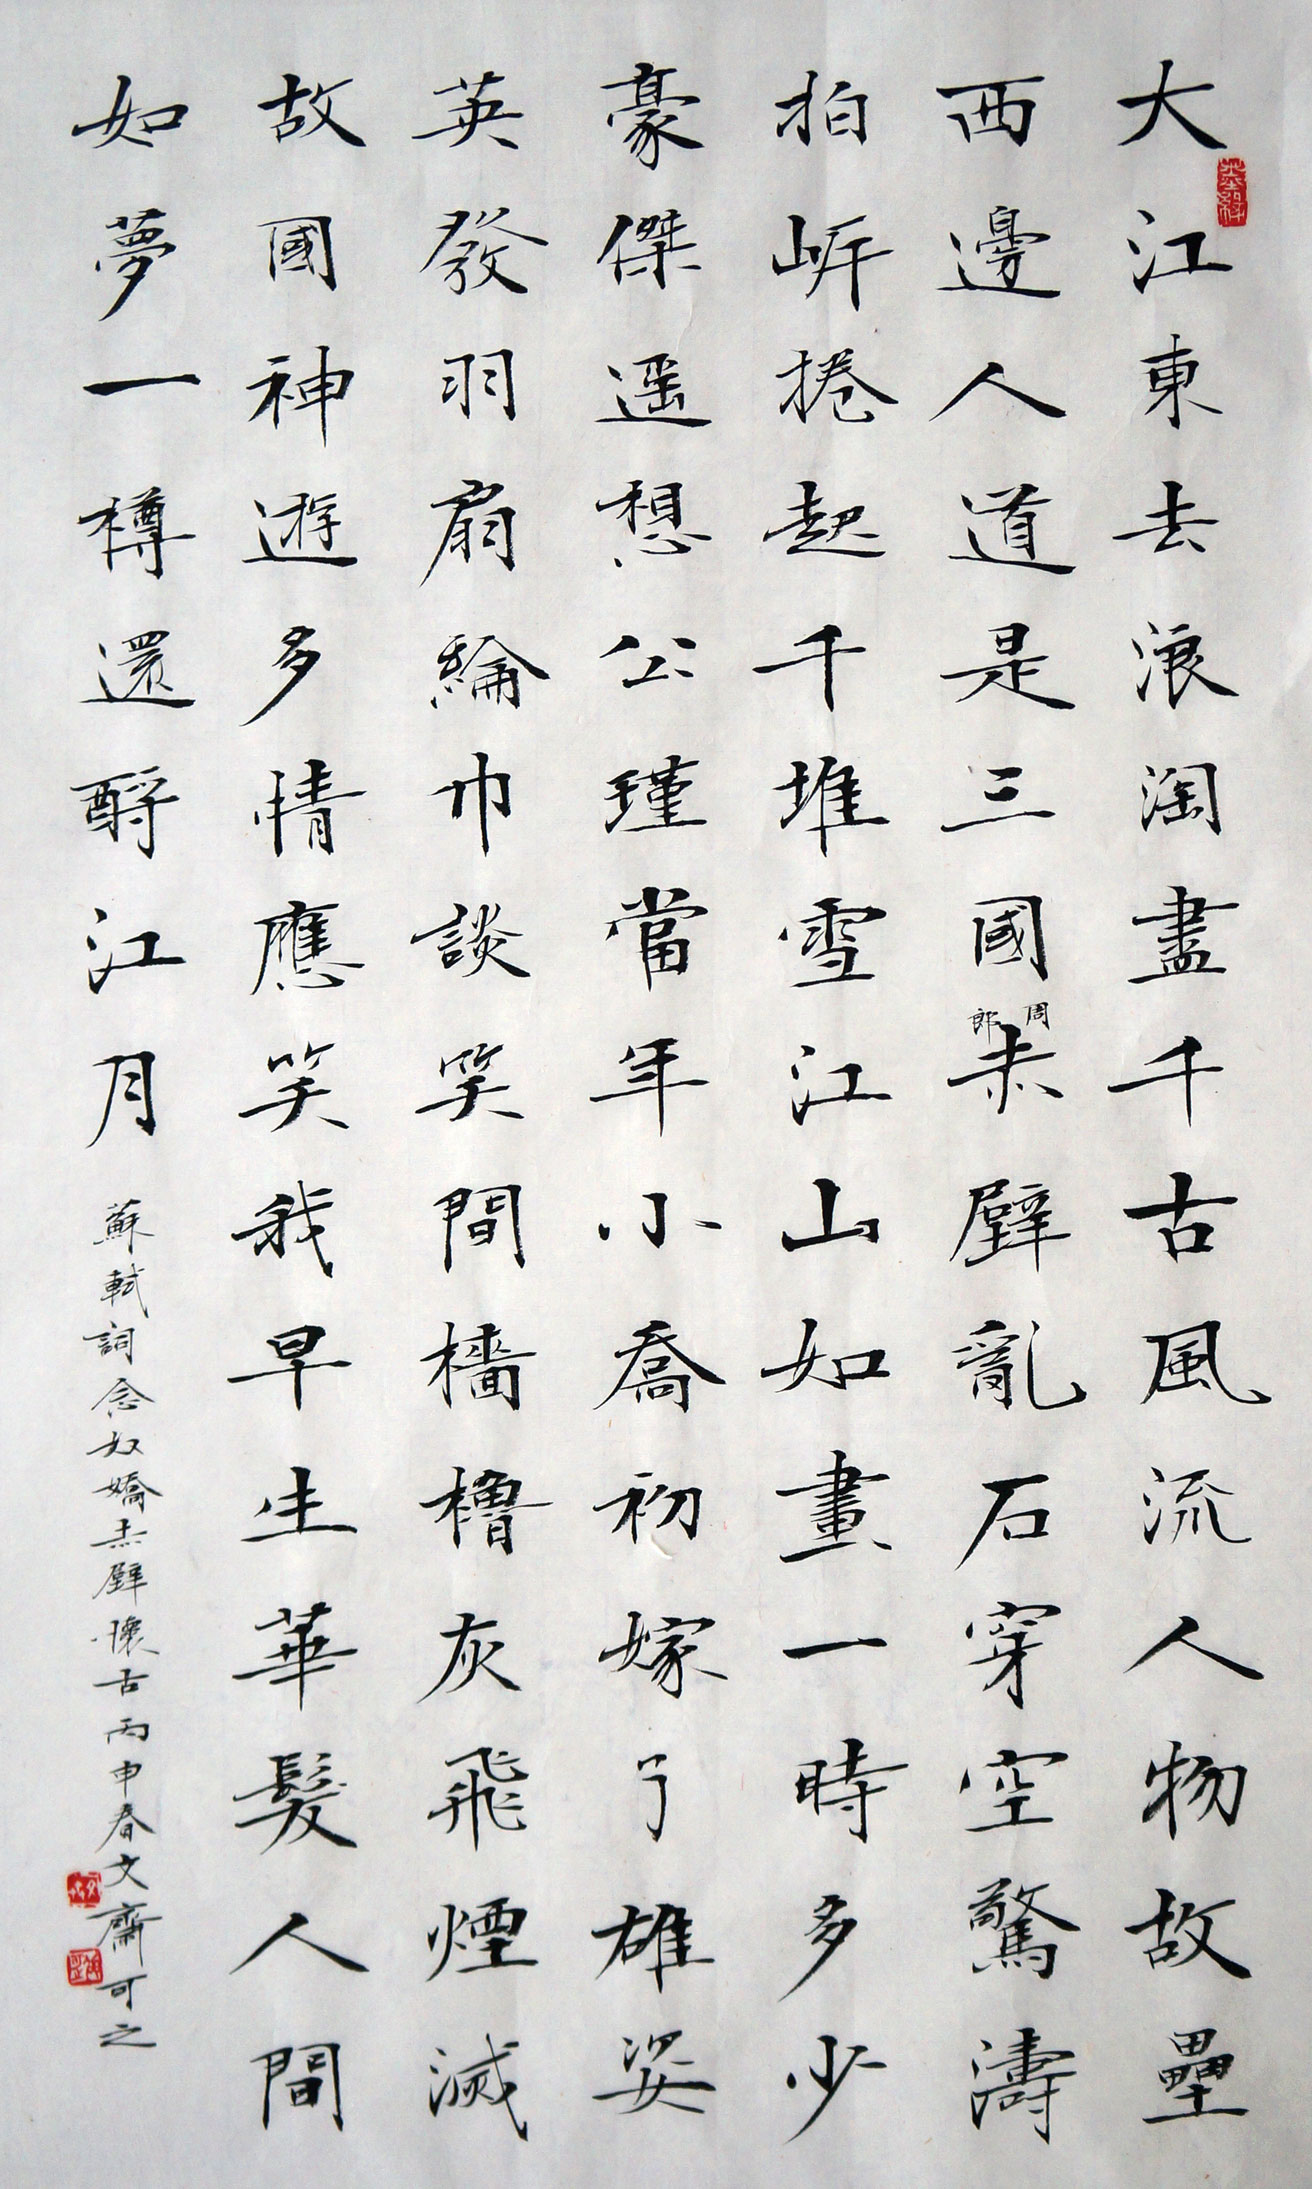 大江東去浪淘盡千古風流人物故壘
西邊人道是三國周郎赤壁亂石穿空驚濤
拍岍捲起千堆雪江山如畫一時多少
豪傑遥想公瑾當年小喬初嫁了雄姿
英發羽扇綸巾談笑間檣櫓灰飛煙滅
故國神遊多情應笑我早生華髮人間
如夢一樽還酹江月
蘇軾詞念奴嬌赤壁懷古丙申春文齋可之